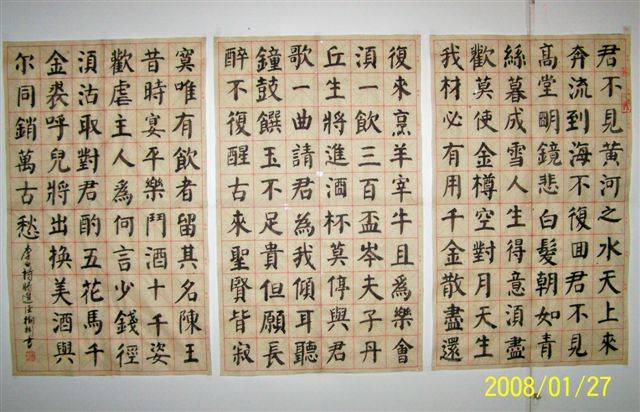 君不見黃河之水天上來
奔流到海不復囬君不見
髙堂明鏡悲白髮朝如青
絲暮成雪人生得意湏盡
歡莫使金樽空對月天生
我材必有用千金散盡還
復來烹羊宰牛且爲樂會
湏一飲三百盃岑夫子丹
丘生將進酒杯莫停與君
歌一曲請君為我傾耳聽
鐘鼓饌玉不足貴但願長
醉不復醒古來聖賢皆寂
寞唯有飲者留其名陳王
昔時宴平樂鬥酒十千姿
歡虐主人爲何言少錢徑
湏沽取對君酌五花馬千
金裘呼兒將出換美酒與
尔同銷萬古愁
李白詩將進酒 書
2008/01/27